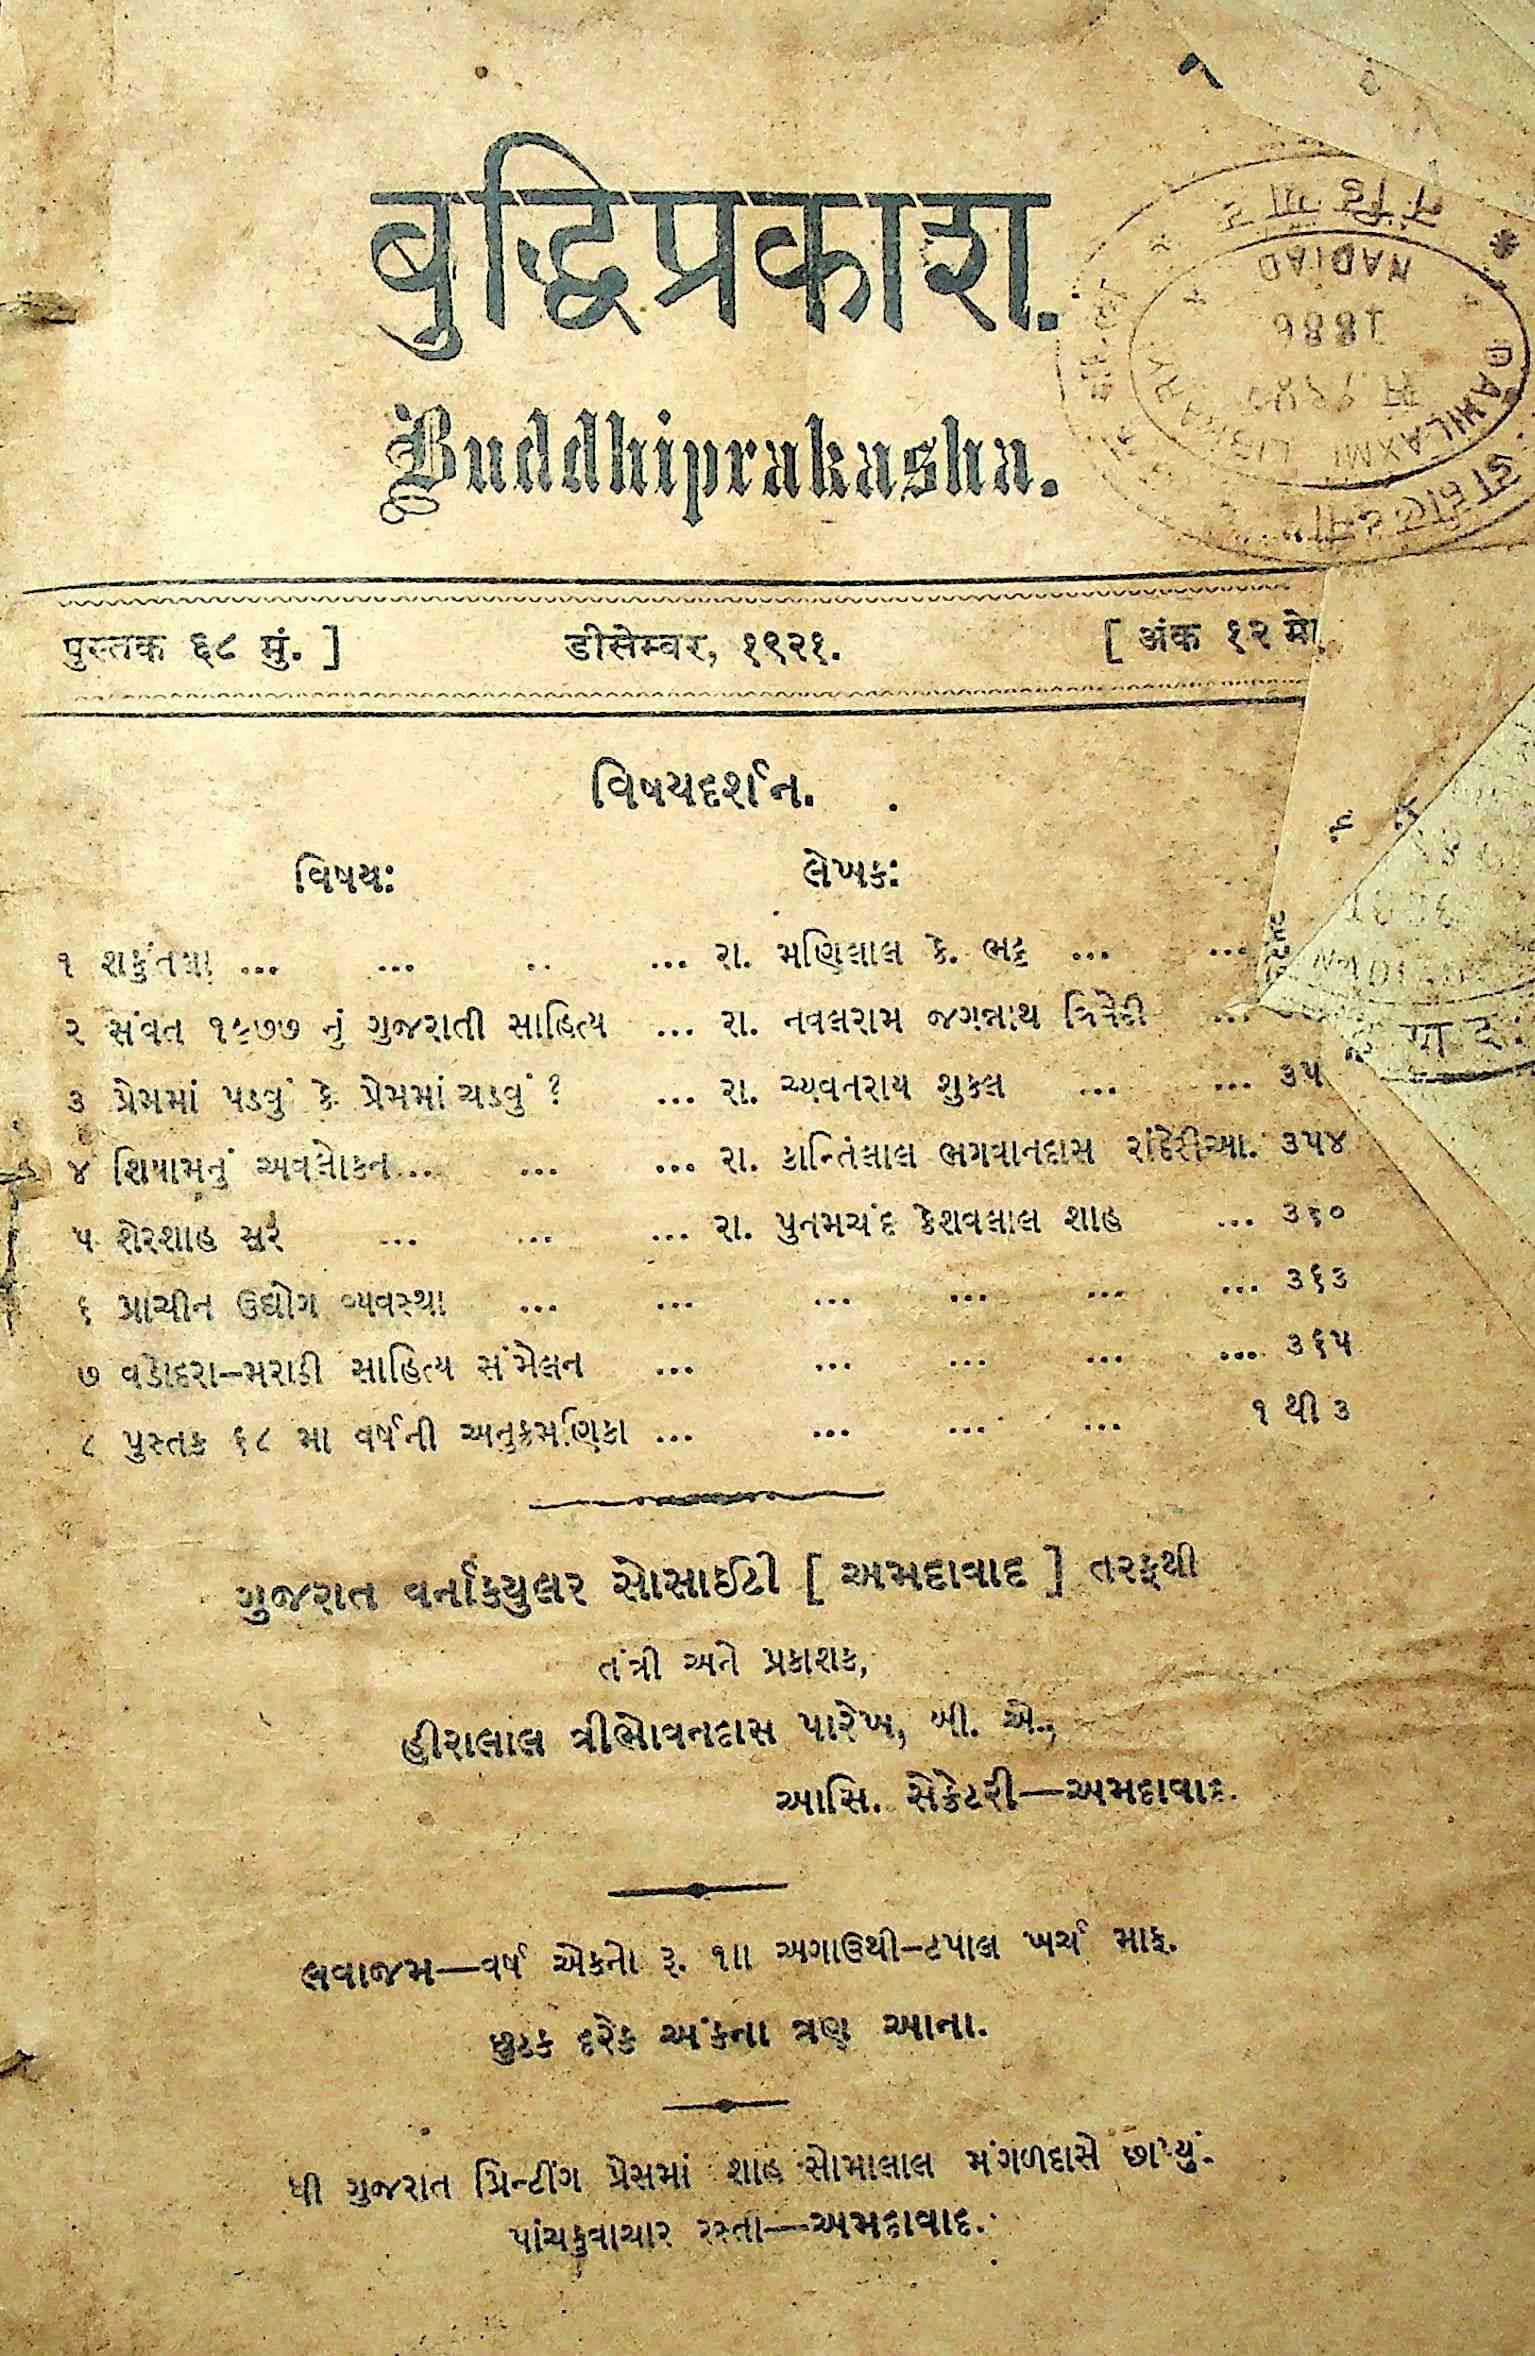 बुद्धिप्रकाश.
Buddhiprakasha.
NADIAD
1886
DAHILAXMI LIBRARY
पुस्तक ६८ मुं. ]
डीसेम्बर, १९२१.
[ अंक १२ मो
વિષયદર્શન.
વિષય: લેખક:
૧ શકુંતલા ... ... .. ... રા. મણિલાલ કે. ભટ્ટ ... ...
૨ સંવત ૧૯૭૭ નું ગુજરાતી સાહિત્ય ... રા. નવલરામ જગન્નાથ ત્રિવેદી ...
૩ પ્રેમમાં પડવું કે પ્રેમમાં ચડવું ? ... રા. ચ્યવનરાય શુકલ ... ... ૩૫
૪ શિયામનું અવલોકન... ... ... રા. કાન્તિલાલ ભગવાનદાસ રાંદેરીઆ. ૩૫૪
૫ શેરશાહ સૂર ... ... ... રા. પુનમચંદ કેશવલાલ શાહ ... ૩૬૦
૬ પ્રાચીન ઉદ્યોગ વ્યવસ્થા ... ... ... ... ... ... ૩૬૩
૭ વડોદરા–મરાઠી સાહિત્ય સંમેલન ... ... ... ... ... ૩૬૫
૮ પુસ્તક ૬૮ મા વર્ષની અનુક્રમણિકા ... ... ... ... ૧ થી ૩
ગુજરાત વર્નાક્યુલર સોસાઈટી [ અમદાવાદ ] તરફથી
તંત્રી અને પ્રકાશક,
હીરાલાલ ત્રીભોવનદાસ પારેખ, બી. એ.,
આસિ. સેક્રેટરી—અમદાવાદ.
લવાજમ—વર્ષ એકનો રૂ. ૧ાા અગાઉથી–ટપાલ ખર્ચ માફ.
છુટક દરેક અંકના ત્રણ આના.
ધી ગુજરાત પ્રિન્ટીંગ પ્રેસમાં શાહ સોમાલાલ મંગળદાસે છાપ્યું.
પાંચકુવાચાર રસ્તા—અમદાવાદ.